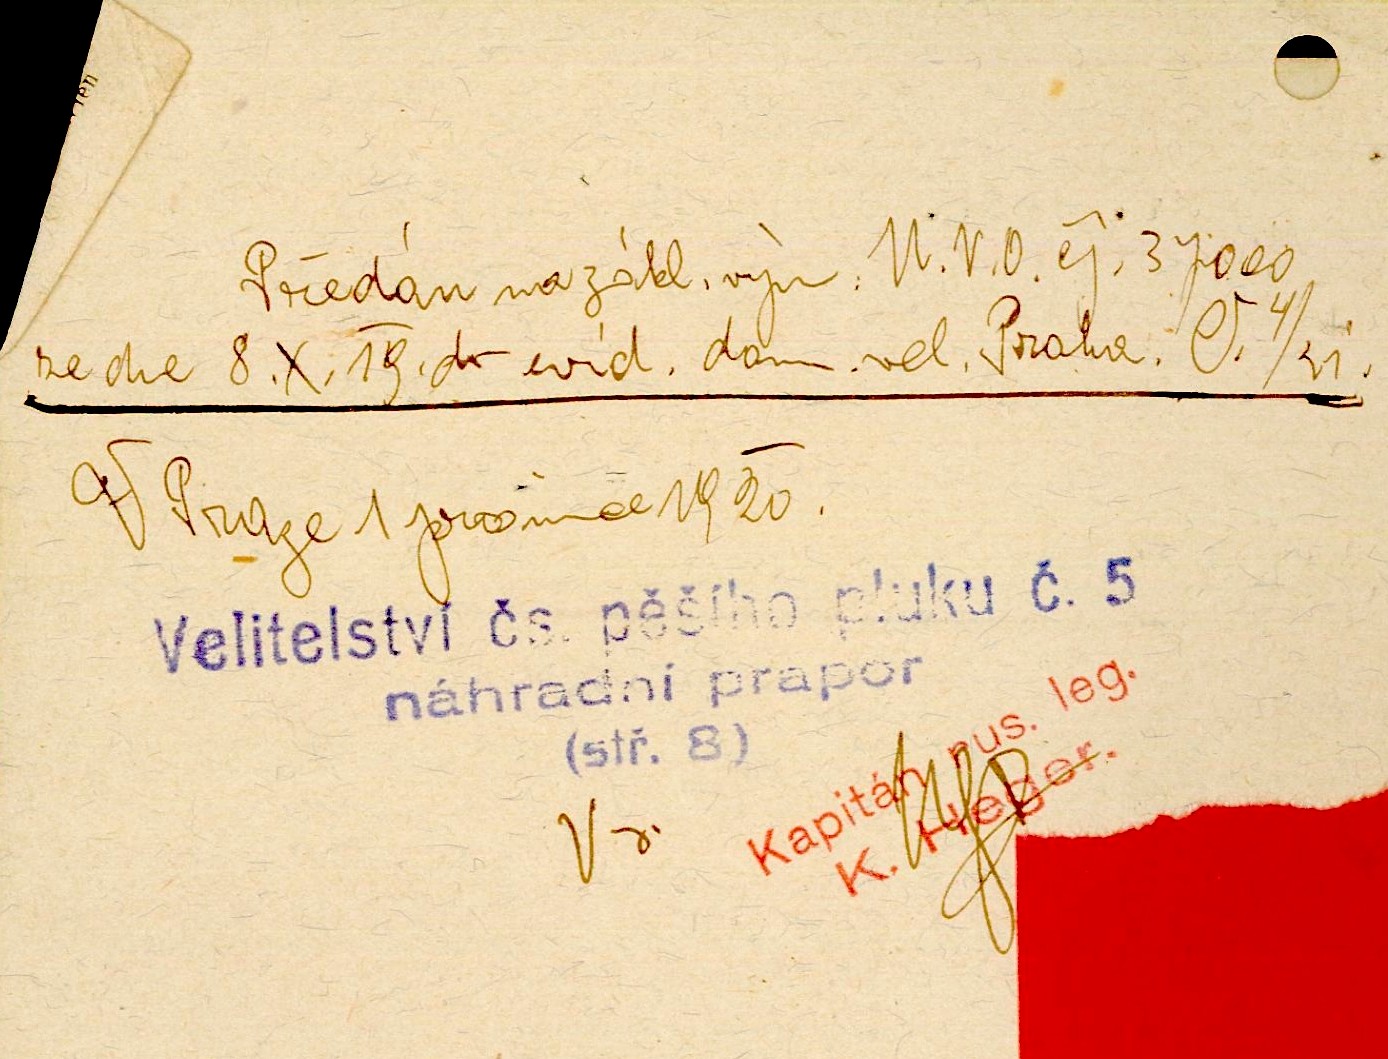 Předán na zákl. výn. M.N.O. čj. 37000
ze dne 8.X.19. do evid. dom. vel. Praha. Č. 4/21.
V Praze 1 prosince 1920.
Velitelství čs. pěšího pluku č. 5
náhradní prapor
(stř. 8)
Kapitán rus. leg.
K. Heger.